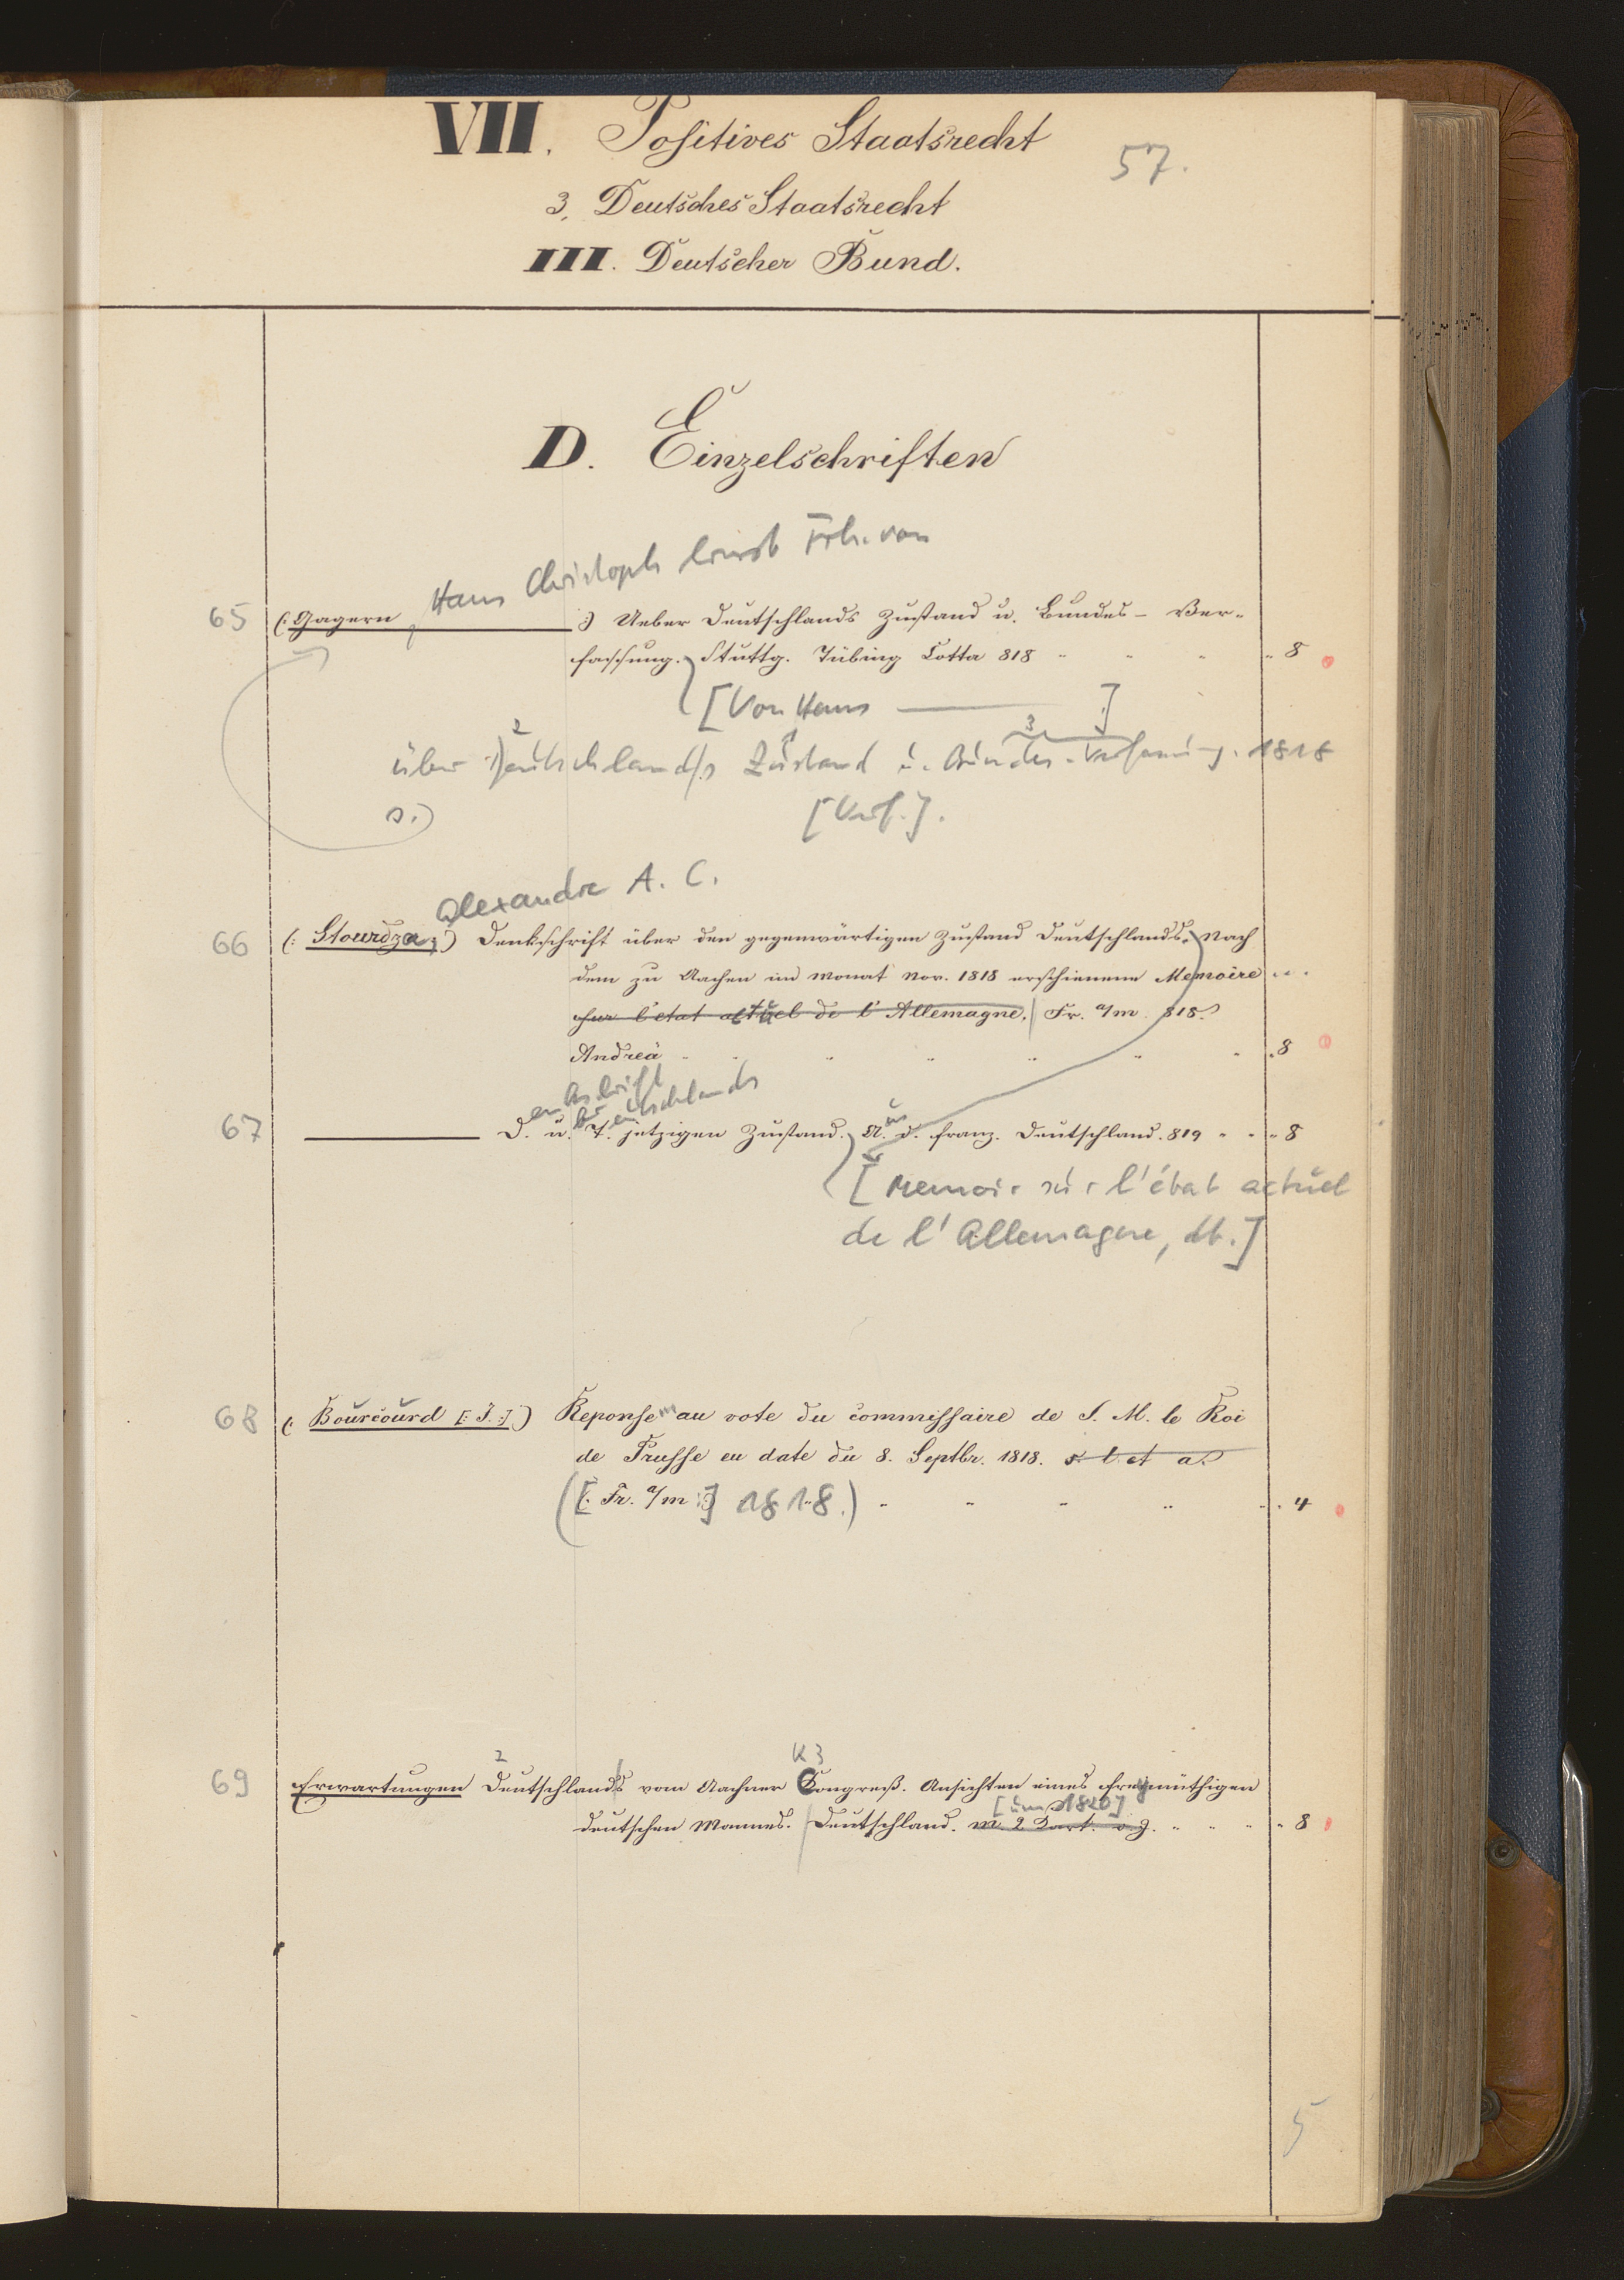 VII. Positives Staatsrecht
57.
3. Deutsches Staatsrecht
III. Deutscher Bund.
D. Einzelschriften
Hans Christoph Ernst Frh. von
65 (: Gagern :) Ueber Deutschlands Zustand u. Bundes- Ver-
fassung. Stuttg. Tübing Cotta 818 " " " " 8
[Von Hans ]
2 3
über Deutschland/s Zustand u. Bundes-Verfassung. 1818
s.) [Verf.].
Alexandre A. C.
66 (: Stourdza :) Denkschrift über den gegenwärtigen Zustand Deutschlands. Nach
dem zu Aachen im Monat Nov. 1818 erschienene Memoire
sur l'etat actuel de l'Allemagne. Fr. a/m 818.
Andreä " " " " " " 8
enkschrift ber eutschlands
67 D. u. T. jetzigen Zustand. A. d. franz. Deutschland. 819 " " " 8
us
[Memoir sur l'état actuel
de l'Allemagne, dt.]
68 (: Bourcourd [: J. :] ) Reponse au vote du commissaire de S. M. le Roi
de Prusse en date du 8. Septbr. 1818. s. l. et a.
([: Fr. a/m :] 1818.) " " " " " 4
2 K 3
69 Erwartungen Deutschlands vom Aachner Congreß. Ansichten eines freymüthigen
[um 1820]
deutschen Mannes. Deutschland. m. 2 Kart. o. J. " " " " 8
5